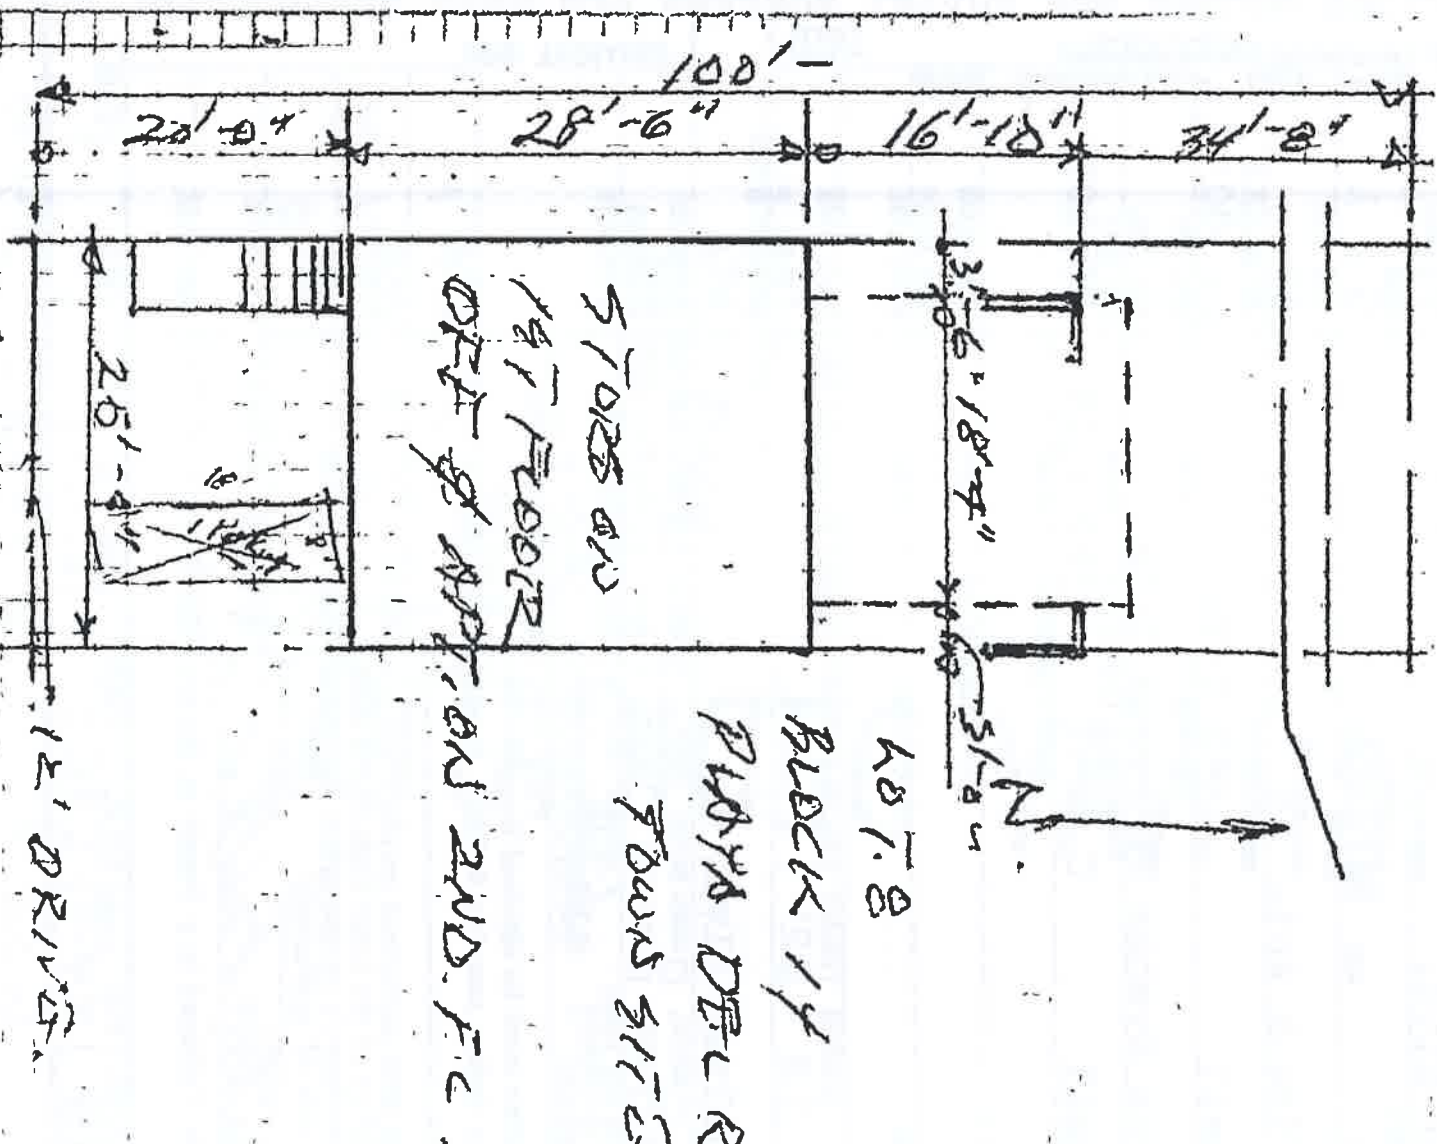 100'-
20'-0"
28'-6"
16'-10"
34'-8"
3'-6"
18'-4"
3'-0"
25'-
STORE ON
1ST FLOOR
OFF & APT, ON 2ND. FL
LOT. 8
BLOCK 14
PLAYA DEL R
TOWN SITE
N
12' DRIVE